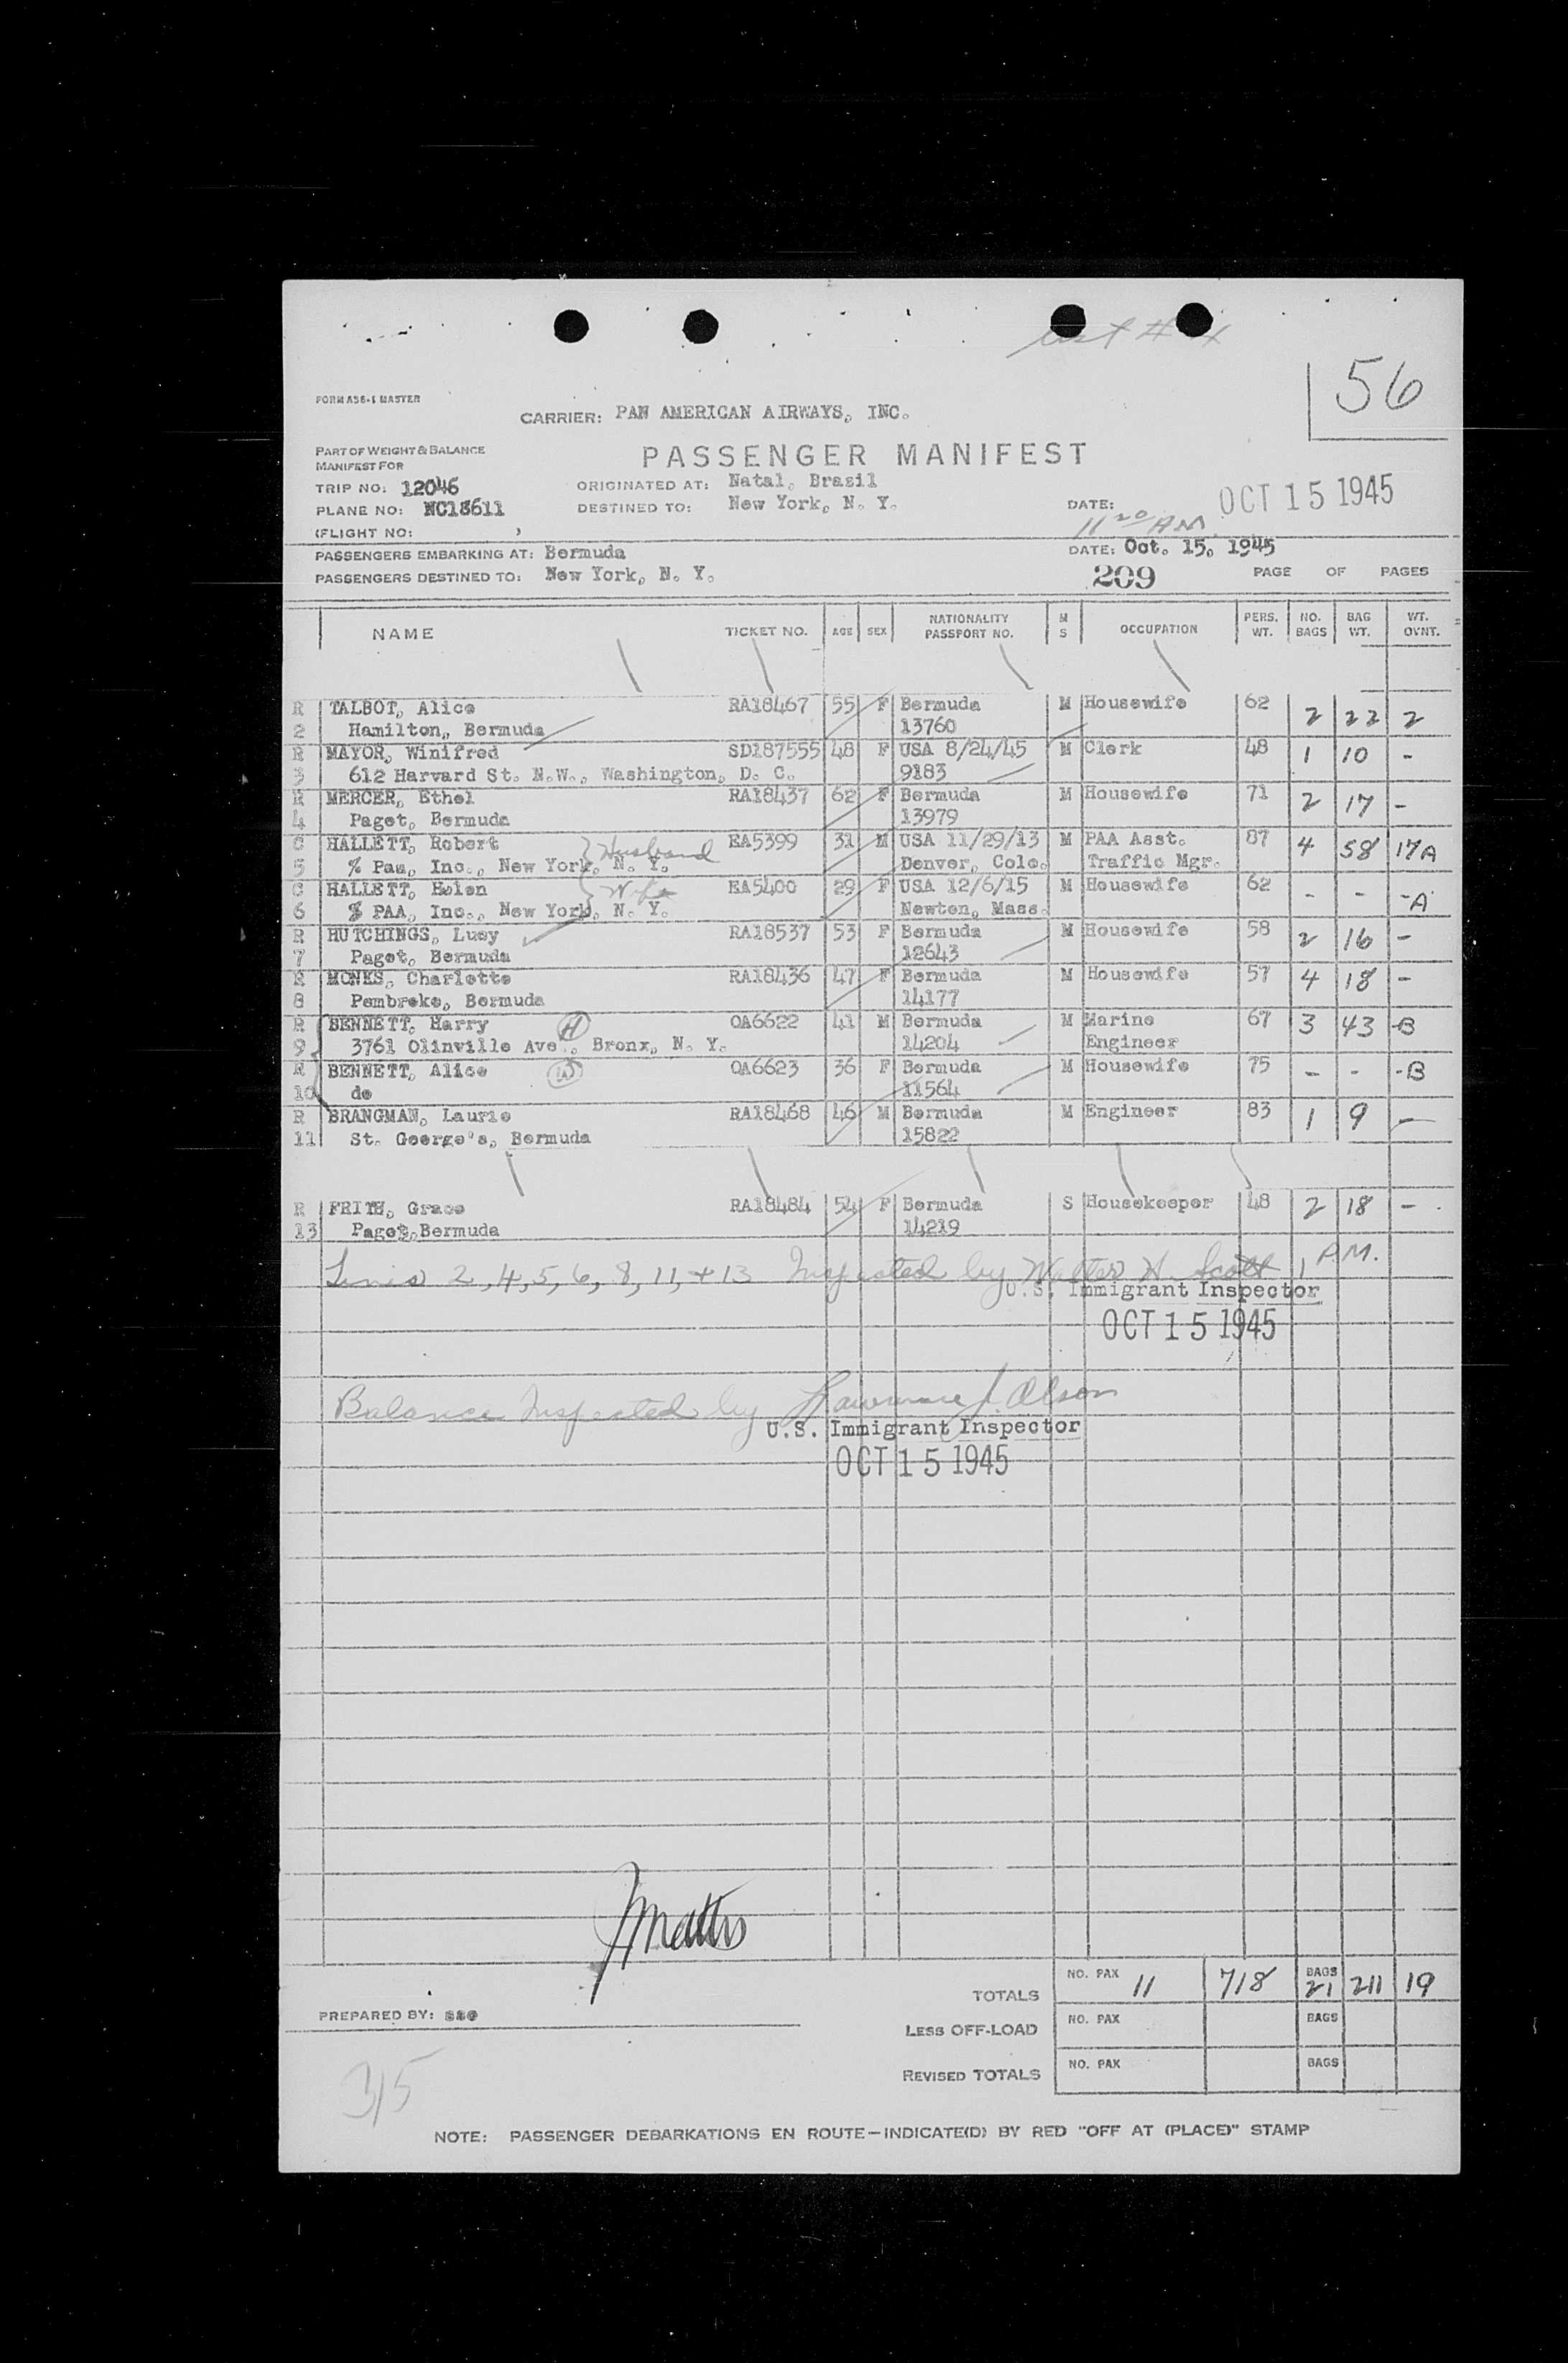 56
FORM A58-1 MASTER
CARRIER: PAN AMERICAN AIRWAYS, INC.
PART OF WEIGHT & BALANCE
MANIFEST FOR
PASSENGER MANIFEST
TRIP NO: 12046 ORIGINATED AT: Natal, Brasil
PLANE NO: NC18611 DESTINED TO: New York, N. Y. DATE: OCT 15 1945
(FLIGHT NO: ) 11 20 AM
PASSENGERS EMBARKING AT: Bermuda DATE: Oct. 15, 1945
PASSENGERS DESTINED TO: New York, N. Y. 209 PAGE OF PAGES
NAME TICKET NO. AGE SEX NATIONALITY PASSPORT NO. M S OCCUPATION PERS. WT. NO. BAGS BAG WT. WT. OVNT.
R TALBOT, Alice RA18467 55 F Bermuda M Housewife 62 2 22 2
2 Hamilton, Bermuda 13760
R MAYOR, Winifred SD187555 48 F USA 8/24/45 M Clerk 48 1 10 -
3 612 Harvard St. N.W., Washington, D. C. 9183
R MERCER, Ethel RA18437 62 F Bermuda M Housewife 71 2 17 -
4 Paget, Bermuda 13979
C HALLETT, Robert Husband EA5399 31 M USA 11/29/13 M PAA Asst. 87 4 58 17A
5 % Paa, Inc., New York, N. Y. Denver, Colo. Traffic Mgr.
C HALLETT, Helen Wife EA5400 29 F USA 12/6/15 M Housewife 62 - - -A
6 % PAA, Inc., New York, N. Y. Newton, Mass.
R HUTCHINGS, Lucy RA18537 53 F Bermuda M Housewife 58 2 16 -
7 Paget, Bermuda 12643
R MONKS, Charlotte RA18436 47 F Bermuda M Housewife 57 4 18 -
8 Pembroke, Bermuda 14177
R BENNETT, Harry H OA6622 41 M Bermuda M Marine 67 3 43 -B
9 3761 Olinville Ave., Bronx, N. Y. 14204 Engineer
R BENNETT, Alice W OA6623 36 F Bermuda M Housewife 75 - - -B
10 do 11564
R BRANGMAN, Laurie RA18468 46 M Bermuda M Engineer 83 1 9 -
11 St. George's, Bermuda 15822
R FRITH, Grace RA18484 54 F Bermuda S Housekeeper 48 2 18 -
13 Paget, Bermuda 14219
Lines 2, 4, 5, 6, 8, 11, + 13 Inspected by Walter H. Scott 1 P.M.
U.S. Immigrant Inspector
OCT 15 1945
Balance Inspected by Lawrence J. Olson
U.S. Immigrant Inspector
OCT 15 1945
TOTALS NO. PAX 11 718 BAGS 21 211 19
PREPARED BY:
LESS OFF-LOAD NO. PAX BAGS
REVISED TOTALS NO. PAX BAGS
315
NOTE: PASSENGER DEBARKATIONS EN ROUTE—INDICATE(D) BY RED "OFF AT (PLACE)" STAMP